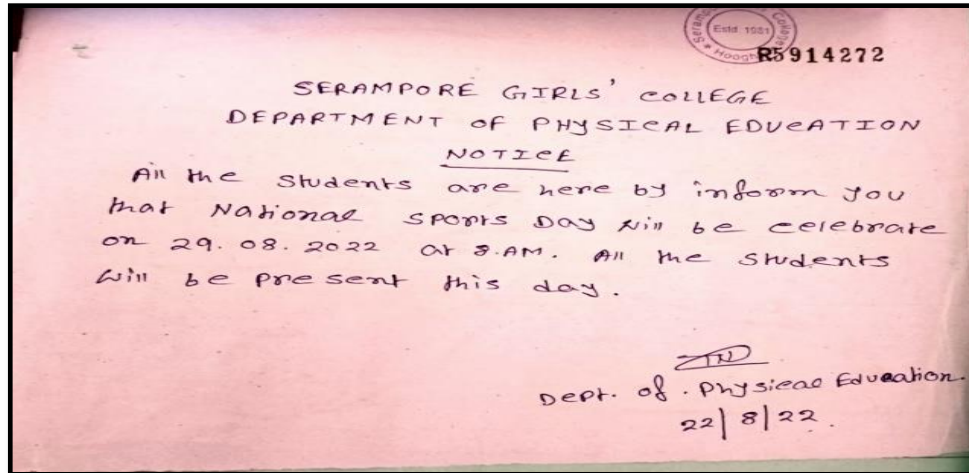 Estd. 1981
R5914272
SERAMPORE GIRLS' COLLEGE
DEPARTMENT OF PHYSICAL EDUCATION
NOTICE
All the students are here by inform you
that National Sports Day will be celebrate
on 29.08.2022 at 8.AM. All the students
will be present this day.
Dept. of. Physical Education.
22/8/22.